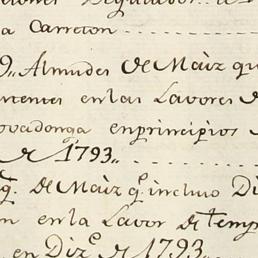 a Carreton
9,, Almudes de Maiz qu
entes en las Lavores d
ovadonga en principios
de 1793,,
q. de Maiz q.e incluio Di
n en la Lavor de temp
en Diz.e de 1793,,